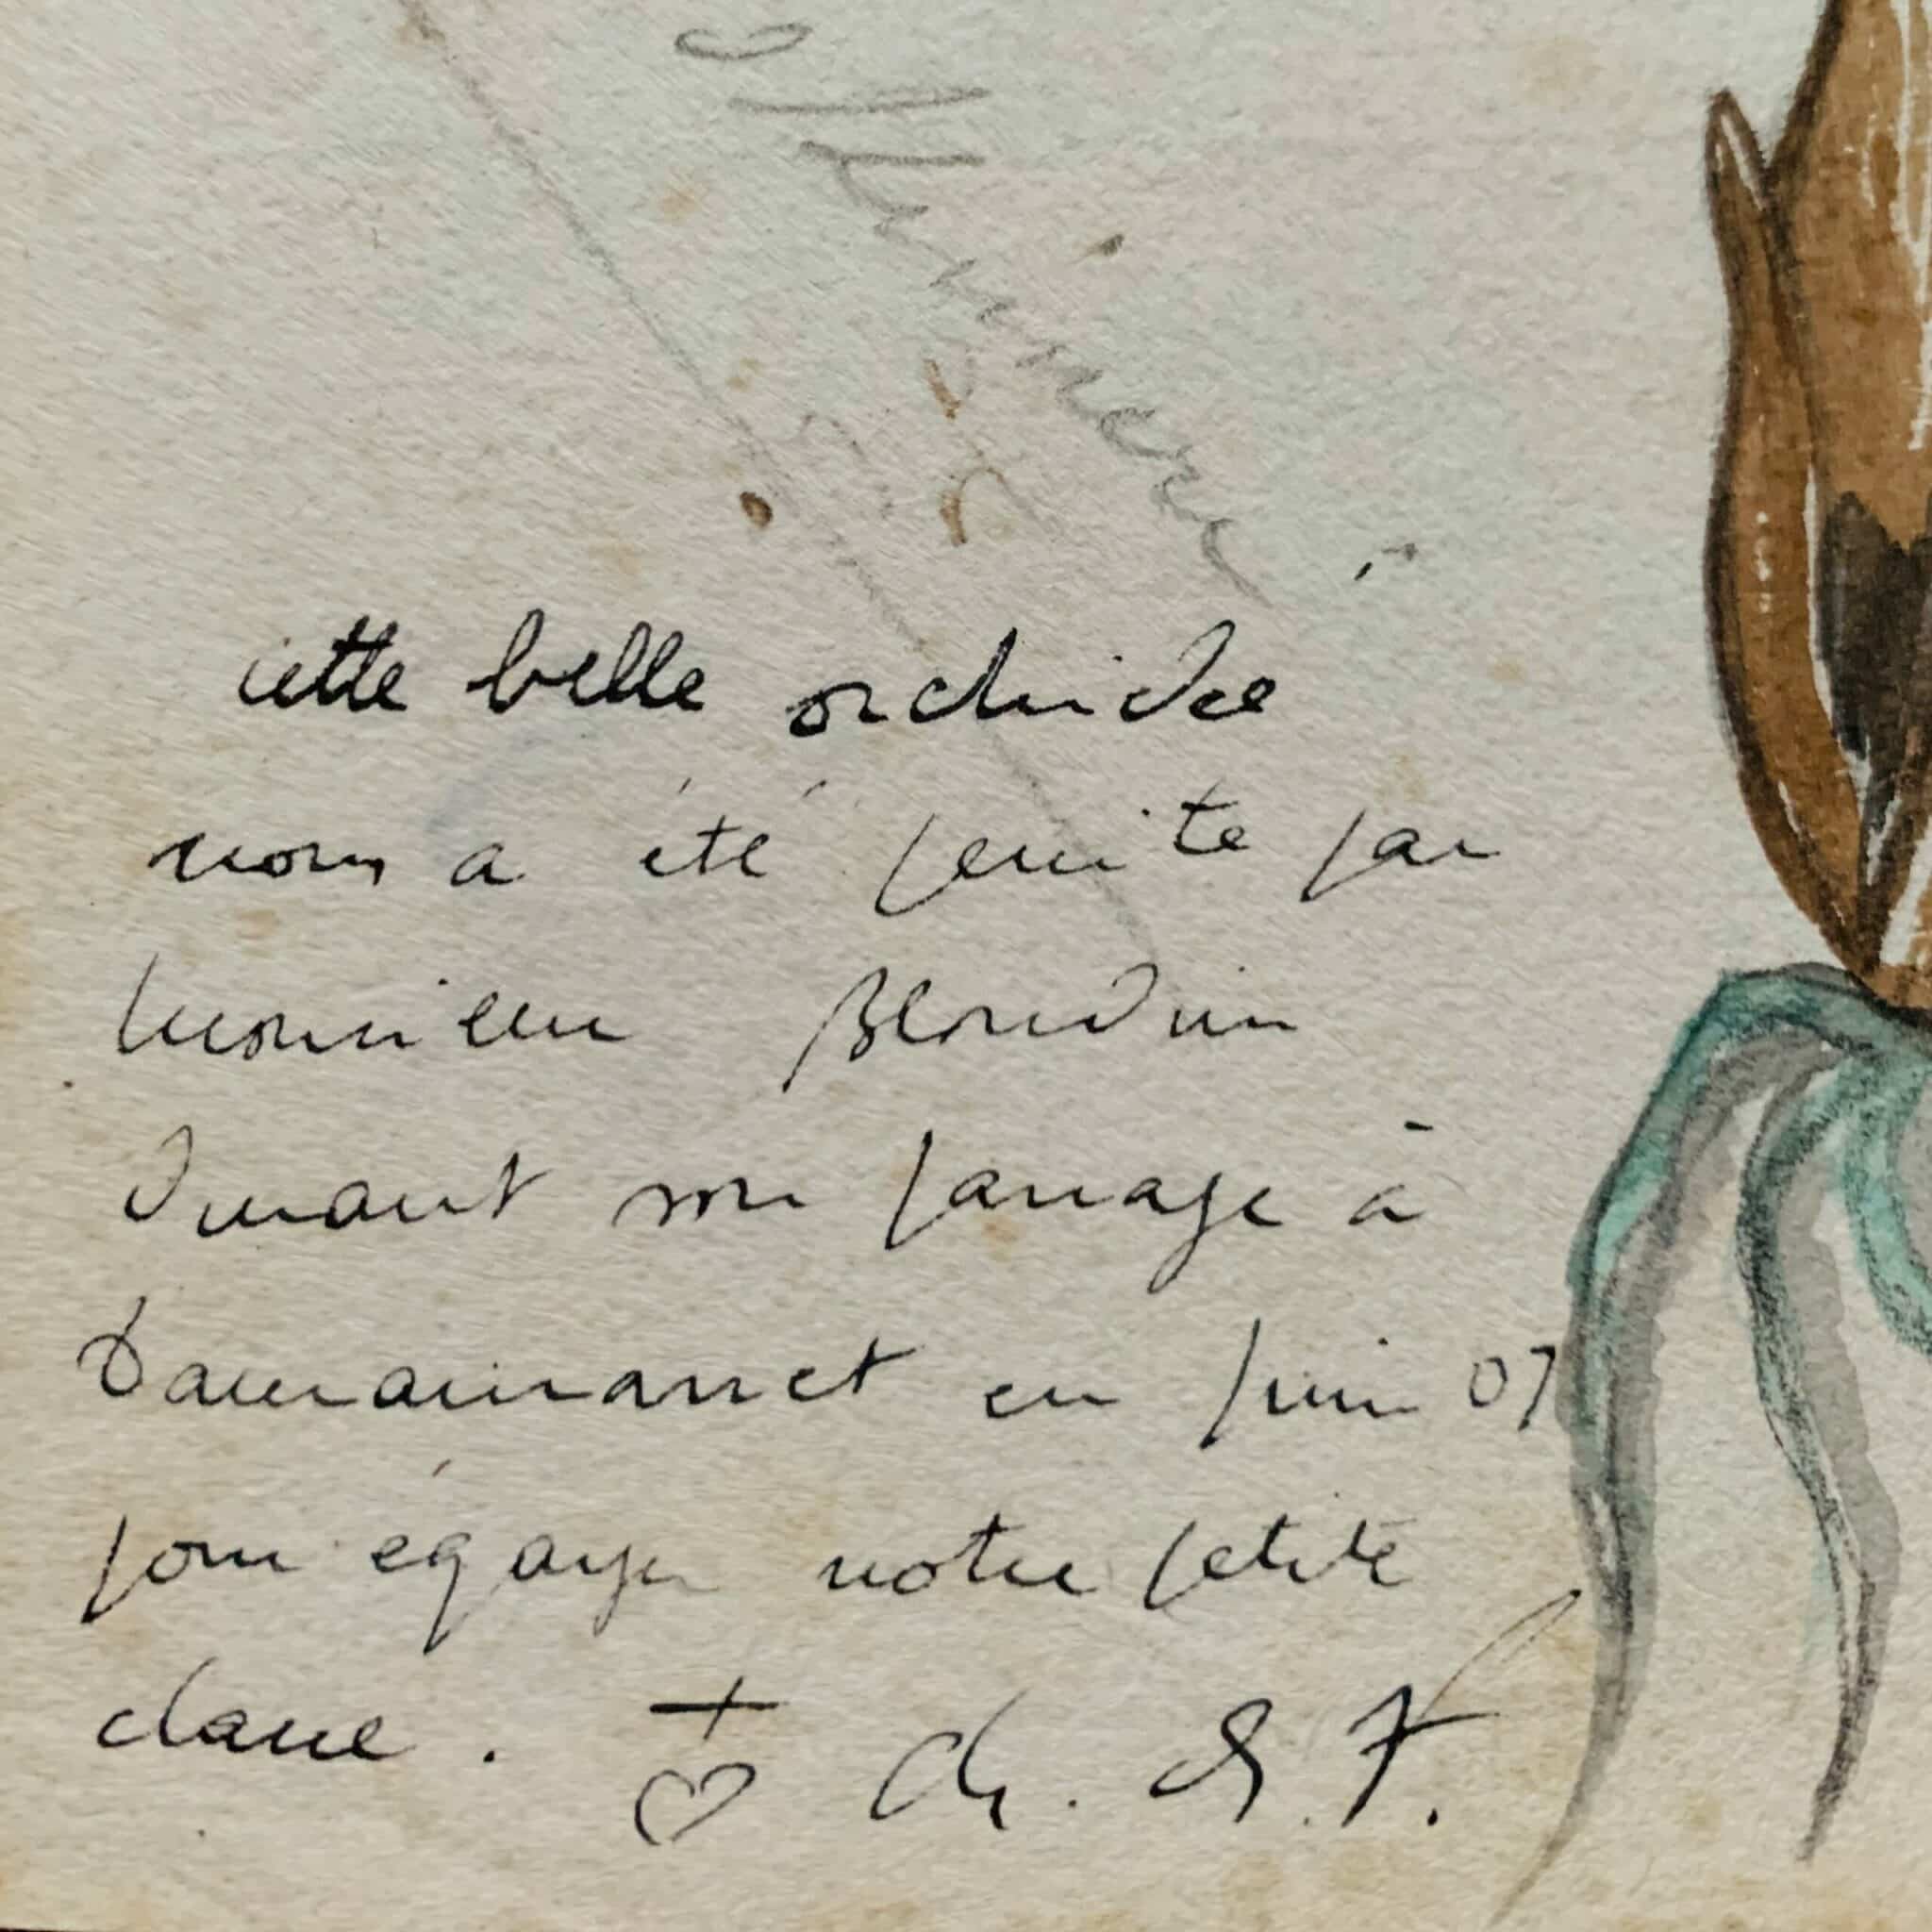 cette belle orchidée
nous a été peinte par
Monsieur Blondin
durant son passage à
Tamanrasset en Juin 07
pour égayer notre petite
classe. Ch. F.